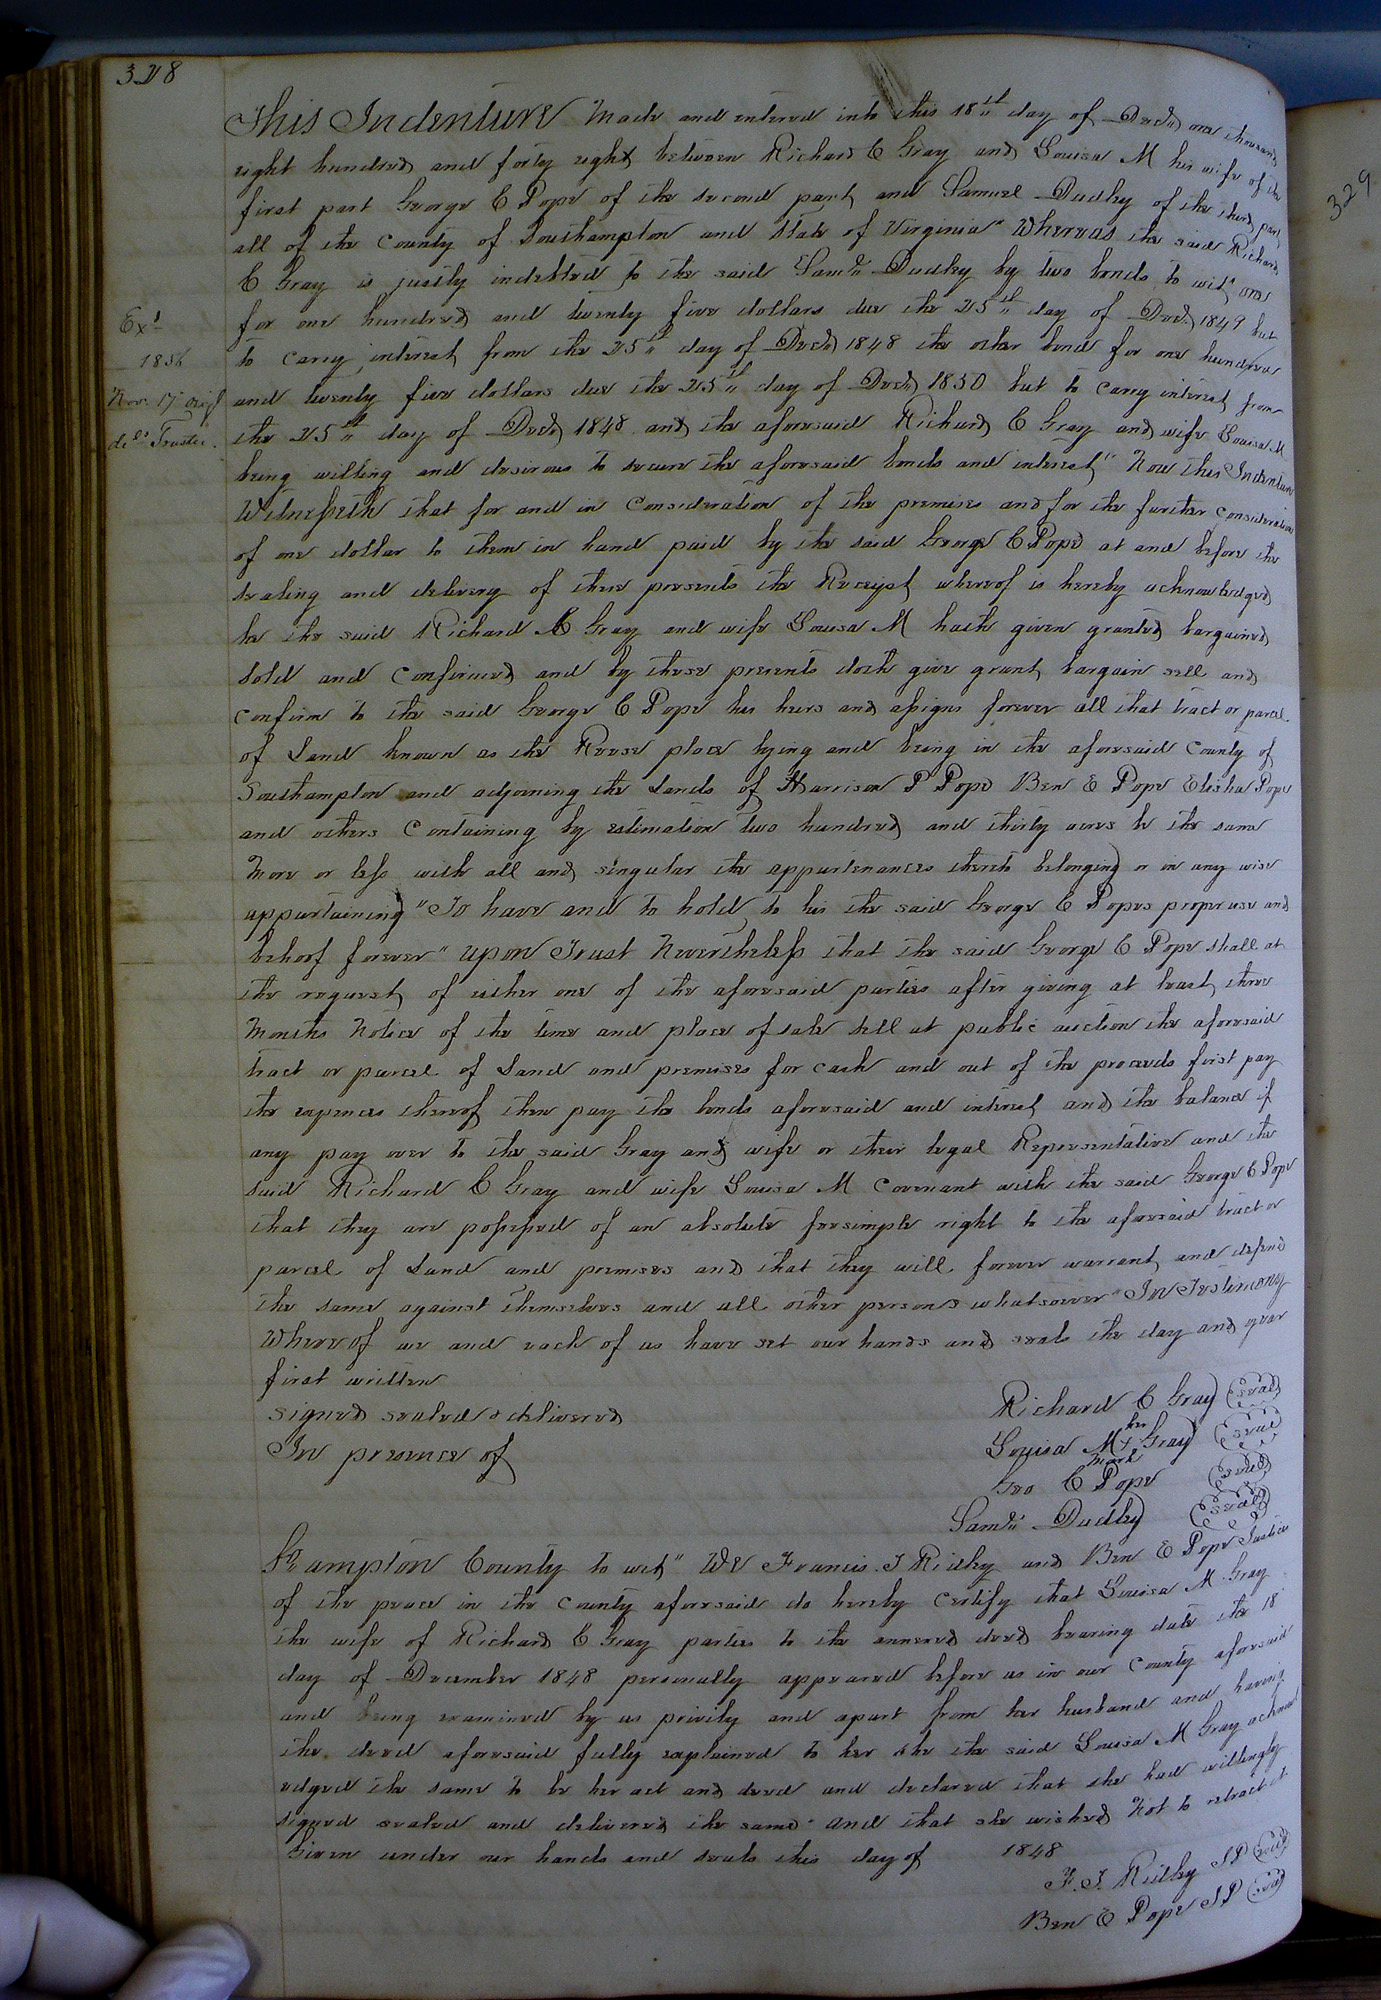 328
This Indenture Made and entered into this 18th day of Decr one thousand
eight hundred and forty eight between Richard C Gray and Louisa M his wife of the
first part George C Pope of the second part and Samuel Dudley of the third part
all of the County of Southampton and State of Virginia" Whereas the said Richard
C Gray is justly indebted to the said Saml Dudley by two bonds to wit" one
for one hundred and twenty five dollars due the 25th day of Decr 1849 but
to carry interest from the 25th day of Decr 1848 the other bond for one hundred
and twenty five dollars due the 25th day of Decr 1850 but to carry interest from
the 25th day of Decr 1848 and the aforesaid Richard C Gray and wife Louisa M
being willing and desirous to secure the aforesaid bonds and interest" Now this Indenture
Witnesseth that for and in Consideration of the premises and for the further consideration
of one dollar to them in hand paid by the said George C Pope at and before the
sealing and delivery of these presents the Receipt whereof is hereby acknowledged
he the said Richard C Gray and wife Louisa M hath given granted bargained
sold and confirmed and by these presents doth give grant bargain sell and
confirm to the said George C Pope his heirs and assigns forever all that tract or parcel
of Land known as the Reese place lying and being in the aforesaid County of
Southampton and adjoining the Lands of Harrison P Pope Ben E Pope Elisha Pope
and others Containing by estimation two hundred and thirty acres be the same
More or less with all and singular the appurtenances thereto belonging or in any wise
appurtaining "To have and to hold to his the said George C Popes proper use and
behoof forever" upon Trust Nevertheless that the said George C Pope shall at
the request of either one of the aforesaid parties after giving at least three
Months Notice of the time and place of sale sell at public auction the aforesaid
tract or parcel of Land and premises for cash and out of the proceeds first pay
the expences thereof then pay the bonds aforesaid and interest and the balance if
any pay over to the said Gray and wife or their legal Representative and the
said Richard C Gray and wife Louisa M Covenant with the said George C Pope
that they are possessed of an absolute feesimple right to the aforesaid tract or
parcel of Land and premises and that they will forever warrant and defend
the same against themselves and all other persons whatsoever "In Testimony
Whereof we and each of us have set our hands and seals the day and year
first written
signed sealed & delivered
In presence of
Richard C Gray (seal)
her
Louisa M + Gray (seal)
mark
Geo C Pope (seal)
Saml Dudley (seal)
Exd
Nov. 17
Trustee.
Sampton County to wit" We Francis J Ridley and Ben E Pope Justices
of the peace in the County aforesaid do hereby Certify that Louisa M Gray
the wife of Richard C Gray parties to the annexed deed bearing date the 18
day of December 1848 personally appeared before us in our County aforesaid
and being examined by us privily and apart from her husband and having
the deed aforesaid fully explained to her she the said Louisa M Gray acknowl
edged the same to be her act and deed and declared that she had willingly
signed sealed and delivered the same and that she wished Not to retract it
Given under our hands and seals this day of 1848
F. J. Ridley JP (seal)
Ben E Pope JP (seal)
329